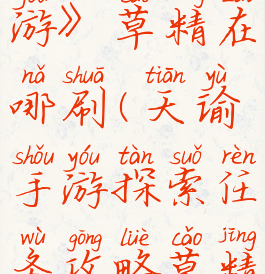 游》草精在
nǎ shuā tiān yù
哪刷(天谕
shǒu yóu tàn suǒ rèn
手游探索任
wù gōng lüè cǎo jīng
务攻略草精